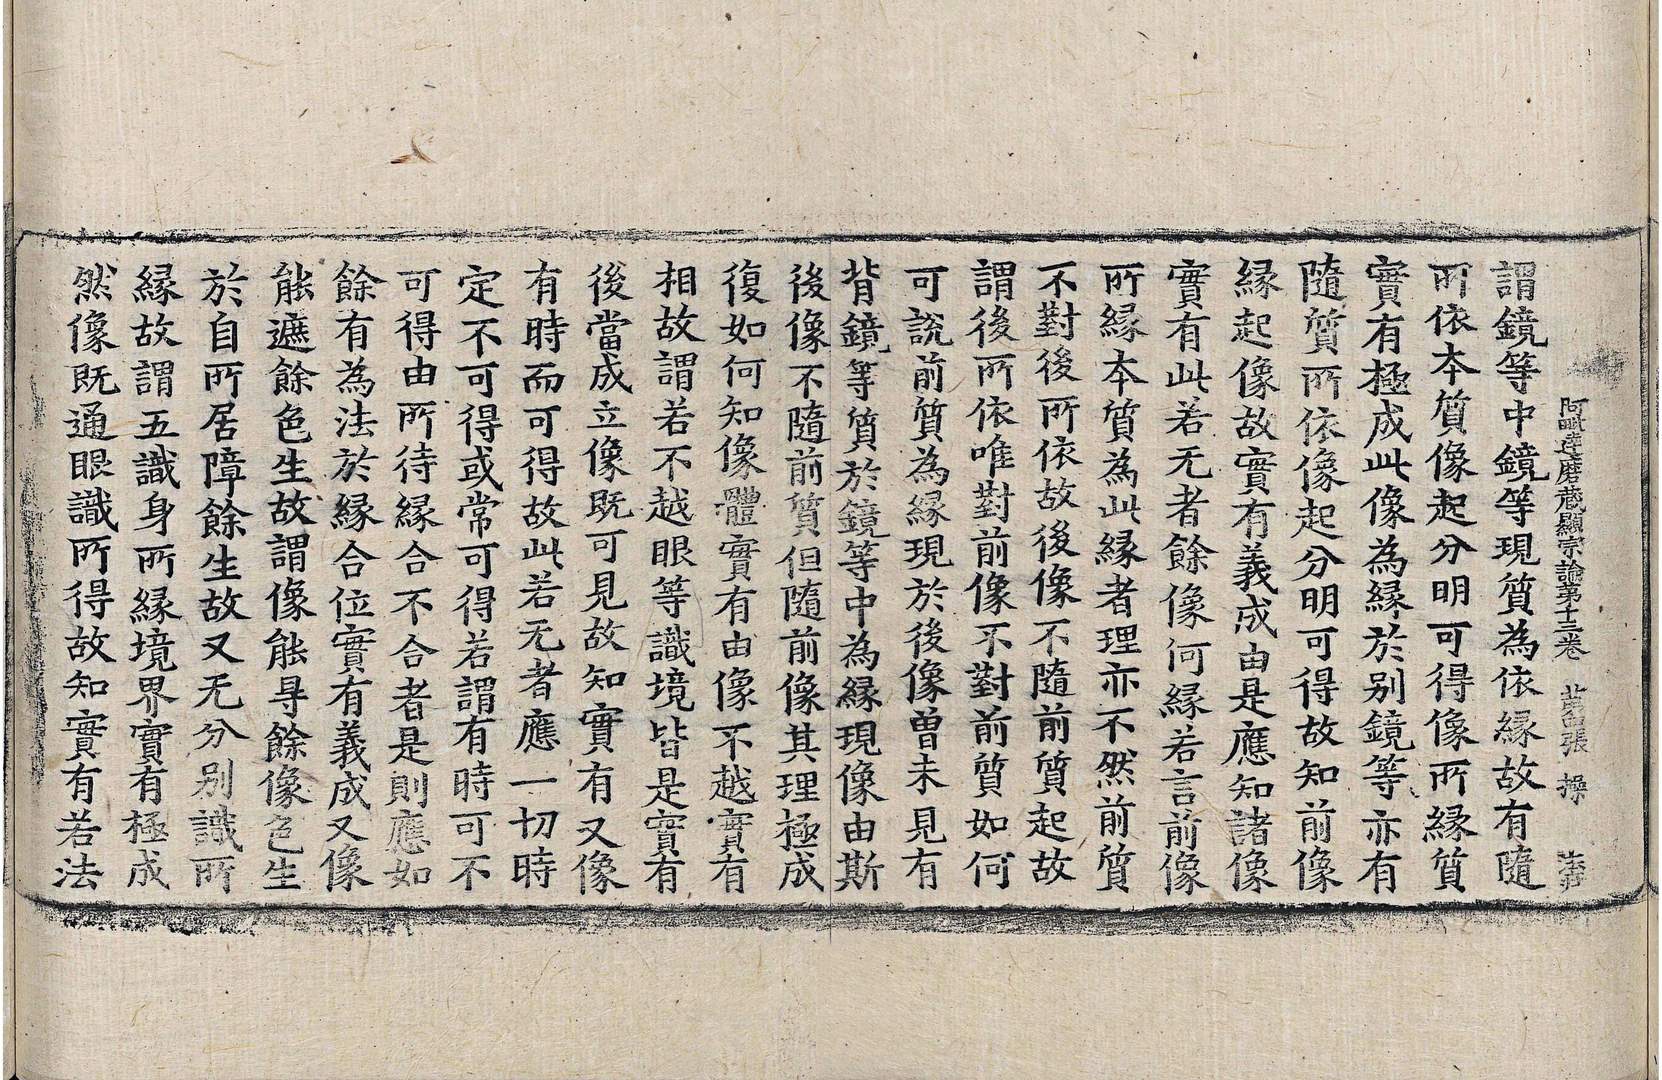 阿毗達磨藏顯宗論第十三卷 張 操
謂鏡等中鏡等現質為依緣故有隨
所依本質像起分明可得像所緣質
實有極成此像為緣於別鏡等亦有
隨質所依像起分明可得故知前像
緣起像故實有義成由是應知諸像
實有此若无者餘像何緣若言前像
所緣本質為此緣者理亦不然前質
不對後所依故後像不隨前質起故
謂後所依唯對前像不對前質如何
可說前質為緣現於後像曾未見有
背鏡等質於鏡等中為緣現像由斯
後像不隨前質但隨前像其理極成
復如何知像體實有由像不越實有
相故謂若不越眼等識境皆是實有
後當成立像既可見故知實有又像
有時而可得故此若无者應一切時
定不可得或常可得若謂有時可不
可得由所待緣合不合者是則應如
餘有為法於緣合位實有義成又像
能遮餘色生故謂像能㝵餘像色生
於自所居障餘生故又无分別識所
緣故謂五識身所緣境界實有極成
然像既通眼識所得故知實有若法